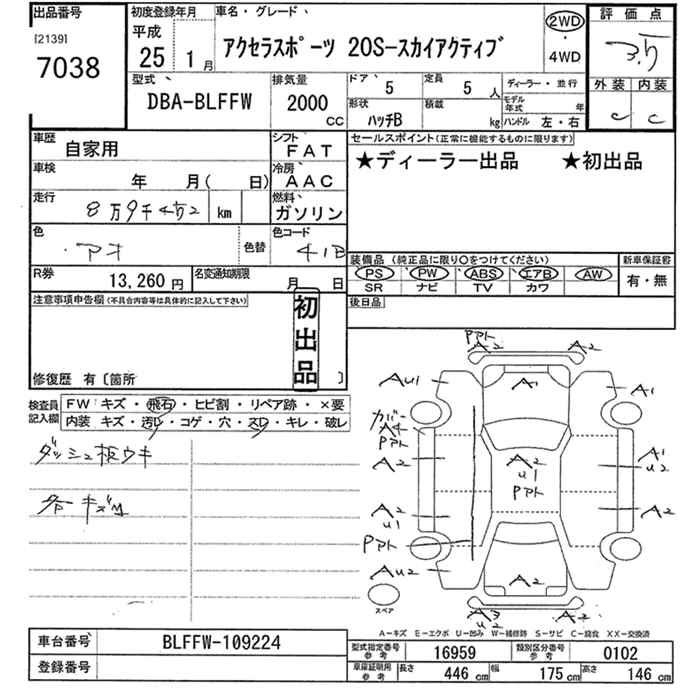 出品番号
[2139]
7038
初度登録年月
平成
25 1月
車名・グレード、
アクセラスポーツ 20S-スカイアクティブ
2WD
・
4WD
評価点
3.5
外装 内装
C C
型式、
DBA-BLFFW
排気量
2000 CC
ドア、
5
定員
5 人
ディーラー・並行
形状
ハッチB
積載
kg
モデル年式 年
ハンドル 左・右
車歴
自家用
シフト
FAT
車検
年 月( 日)
冷房
AAC
走行
8万9千452 km
燃料
ガソリン
色
アオ
色替
色コード
41B
R券
13,260円
名変通知期限
月 日
セールスポイント(正常に機能するものに限ります)
★ディーラー出品 ★初出品
装備品 (純正品に限り〇をつけてください)
PS PW ABS エアB AW
SR ナビ TV カワ
新車保証書
有・無
後日品
注意事項申告欄(不具合内容等は具体的に記入して下さい)
初出品
修復歴 有〔箇所 〕
検査員記入欄
FW キズ・飛石・ヒビ割・リペア跡・×要
内装 キズ・汚レ・コゲ・穴・スレ・キレ・破レ
ダッシュ板ウキ
各キズ
PPト
A2
A2
AU1
A1
A1
カバー
A4
PPト
A2
A2
U1
PPト
A1
U2
A2
A2
U1
PPト
AU2
A2
A3
U2
A2
スペア
A-キズ E-エクボ U-凹み W-補修跡 S-サビ C-腐食 XX-交換済
車台番号
BLFFW-109224
登録番号
型式指定番号 参考
16959
類別区分番号 参考
0102
車庫証明用 参考
長さ 446 cm 幅 175 cm 高さ 146 cm